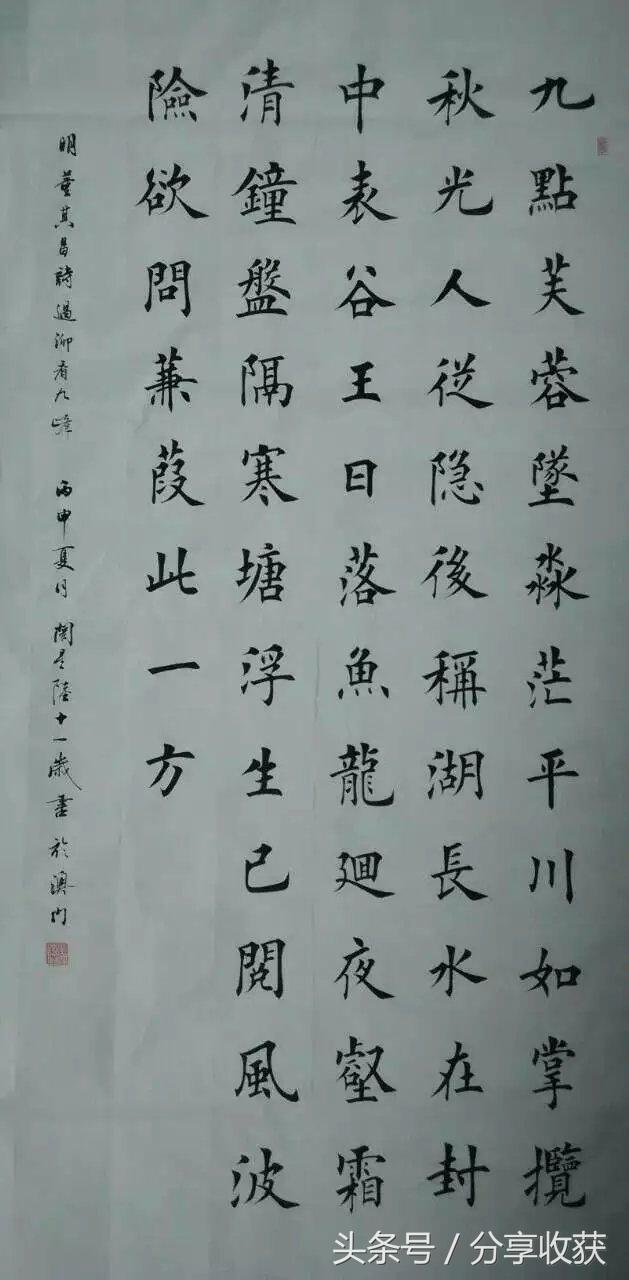 九點芙蓉墜淼茫平川如掌攬
秋光人從隐後稱湖長水在封
中表谷王日落魚龍廻夜壑霜
清鐘盤隔寒塘浮生已閱風波
險欲問蒹葭此一方
明董其昌詩過泖看九峰 丙申夏月 陸十一歲書於澳門
头条号 / 分享收获